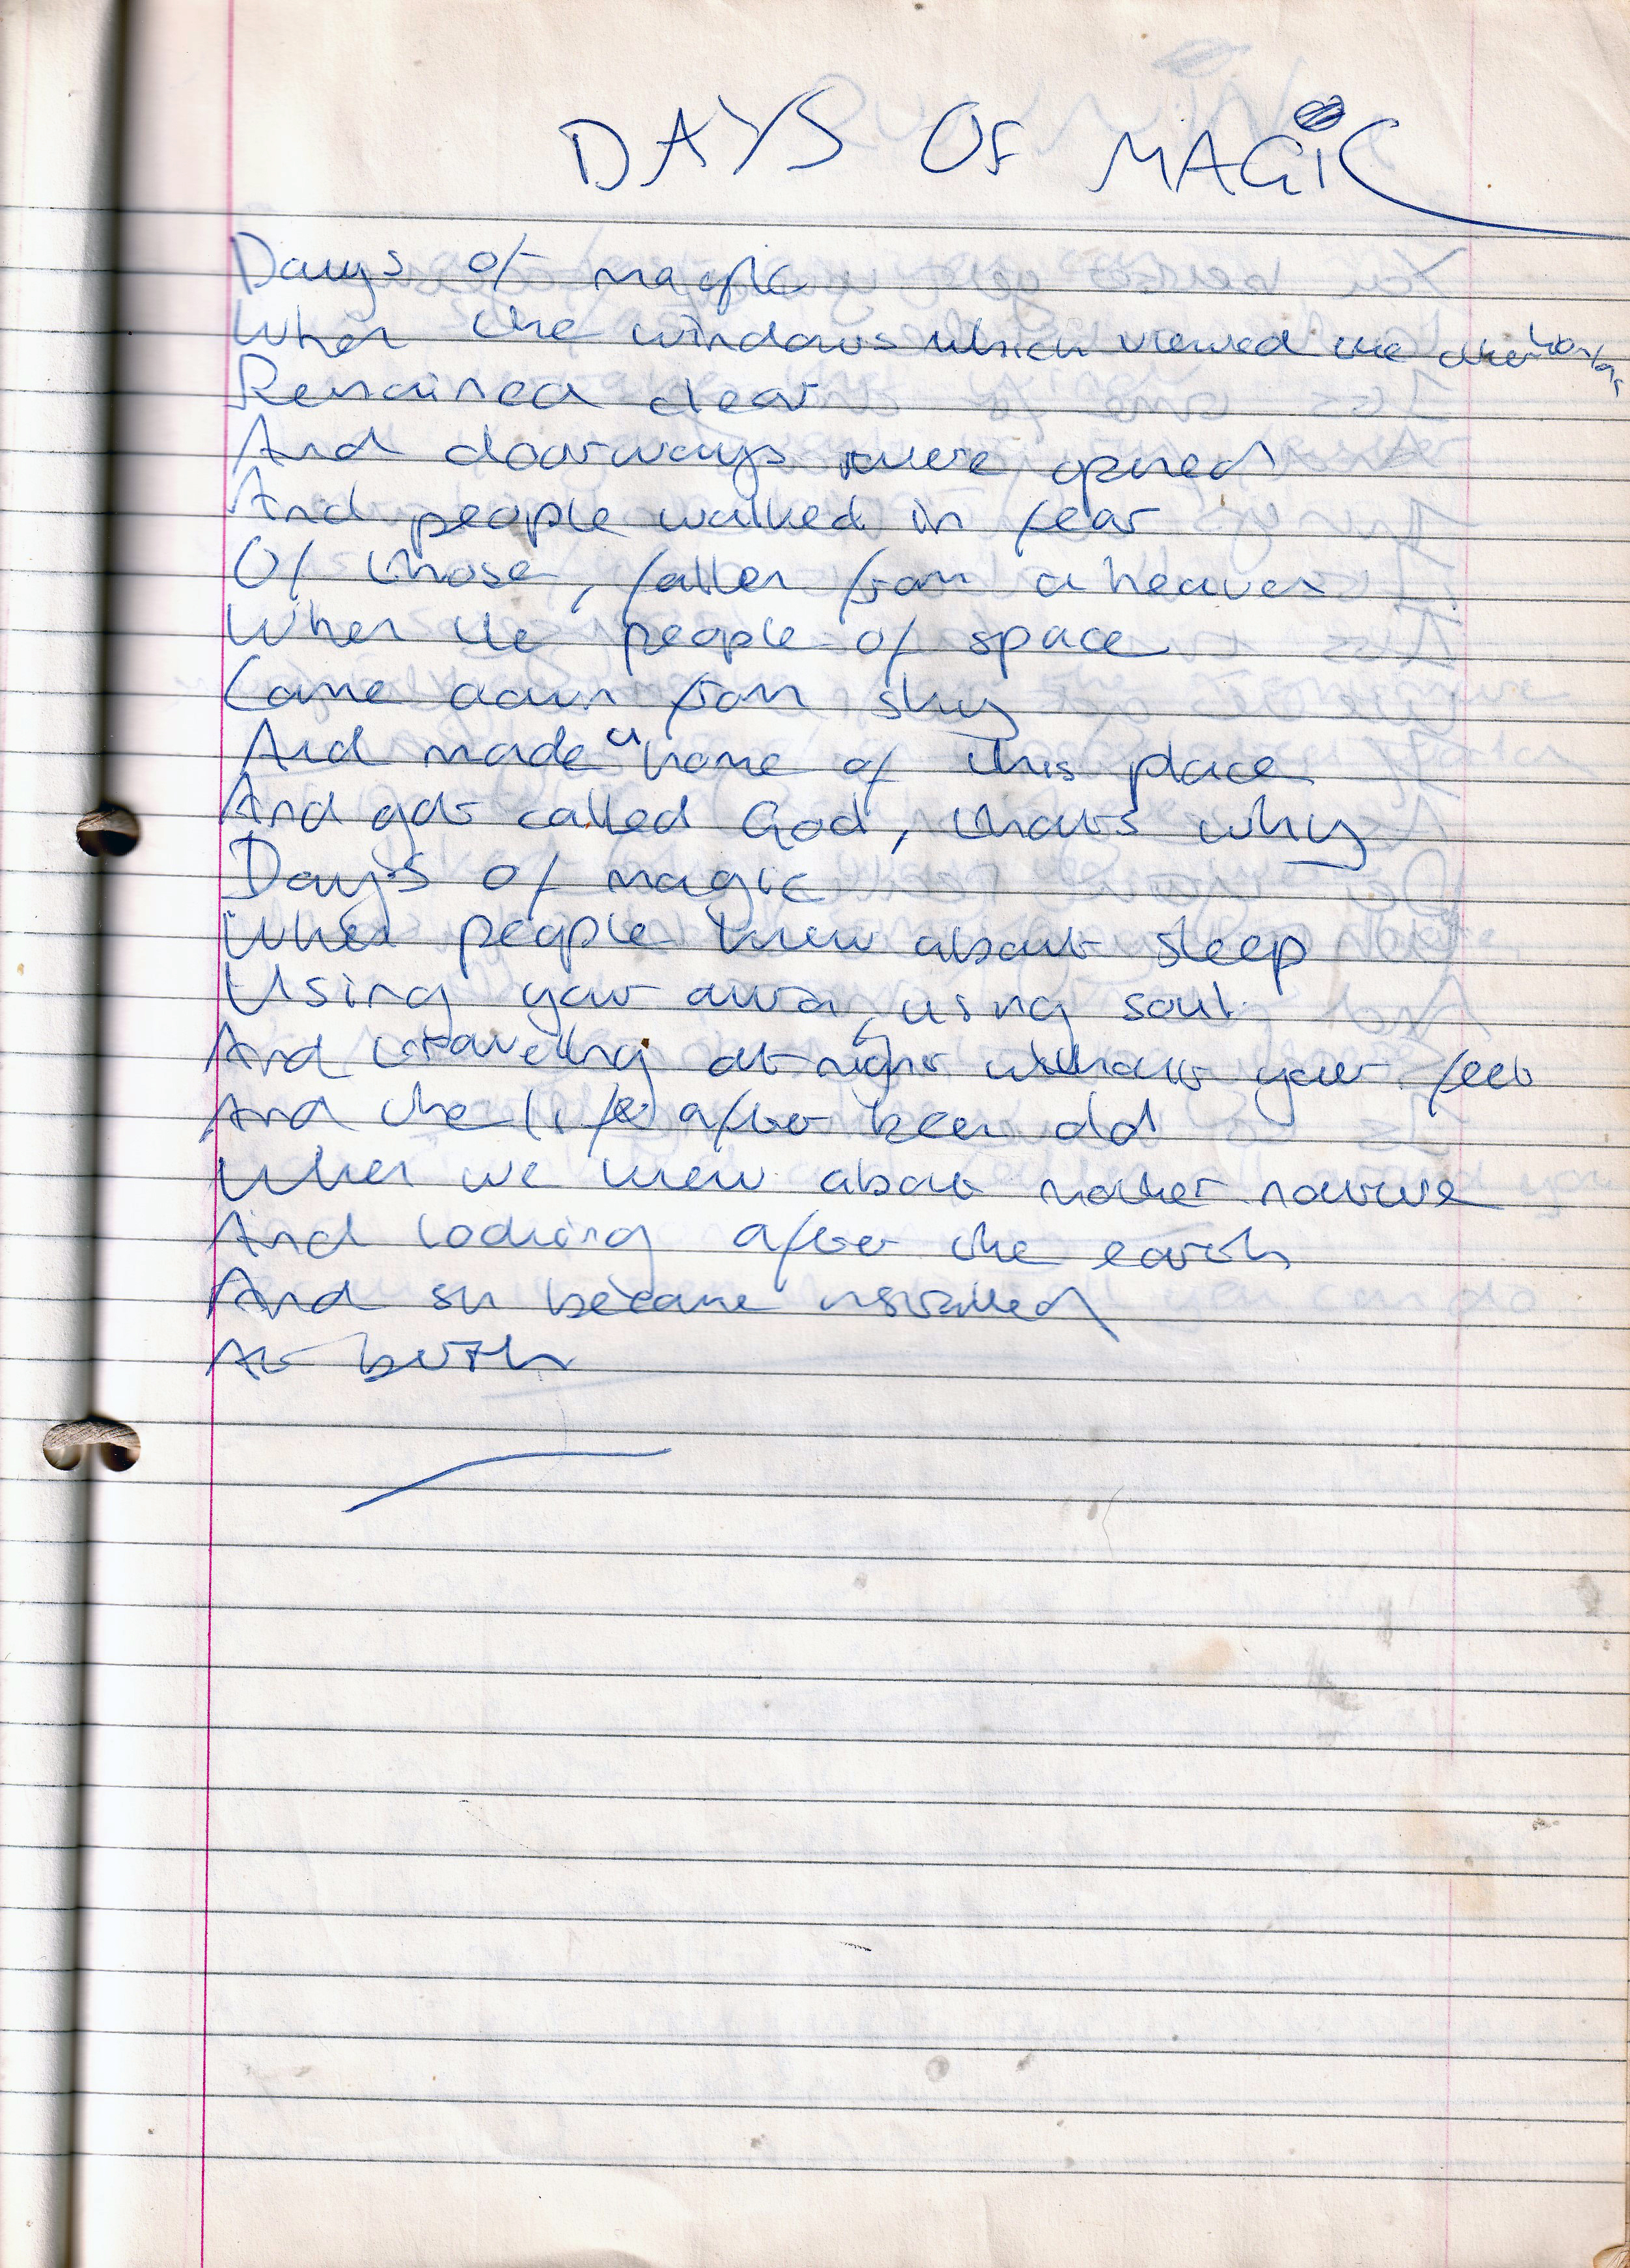 DAYS OF MAGIC
Days of magic
When the windows which viewed the other worlds
Remained clear
And doorways were opned
And people walked in fear
Of those, fallen from a heaven
When the people of space
Came down from sky
And made a home of this place
And got called God, thats why
Days of magic
When people knew about sleep
Using your aura, using soul
And traveling at night without your feet
And the life after been old
When we knew about mother nature
And looking after the earth
And sin became installed
At birth